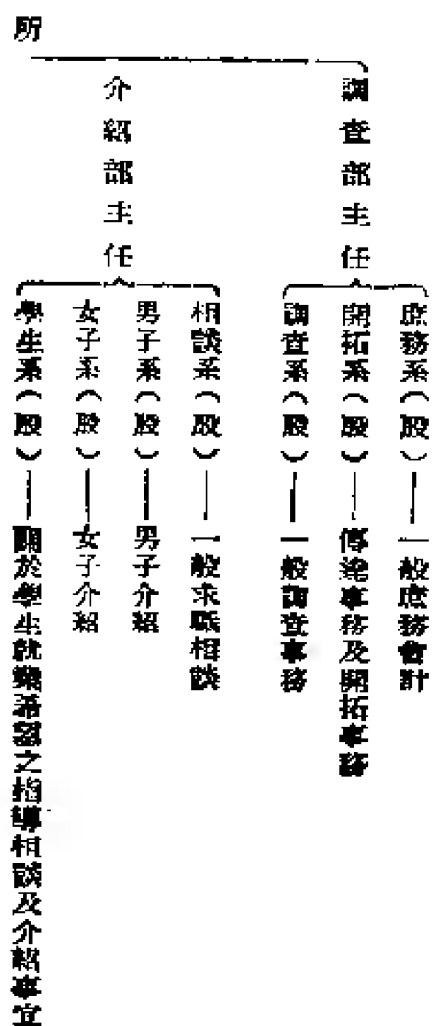 所
調查部主任
庶務系(股)——一般庶務會計
開拓系(股)——傳達事務及開拓事務
調查系(股)——一般調查事務
介紹部主任
相談系(股)——一般求職相談
男子系(股)——男子介紹
女子系(股)——女子介紹
學生系(股)——關於學生就職希望之指導相談及介紹事宜